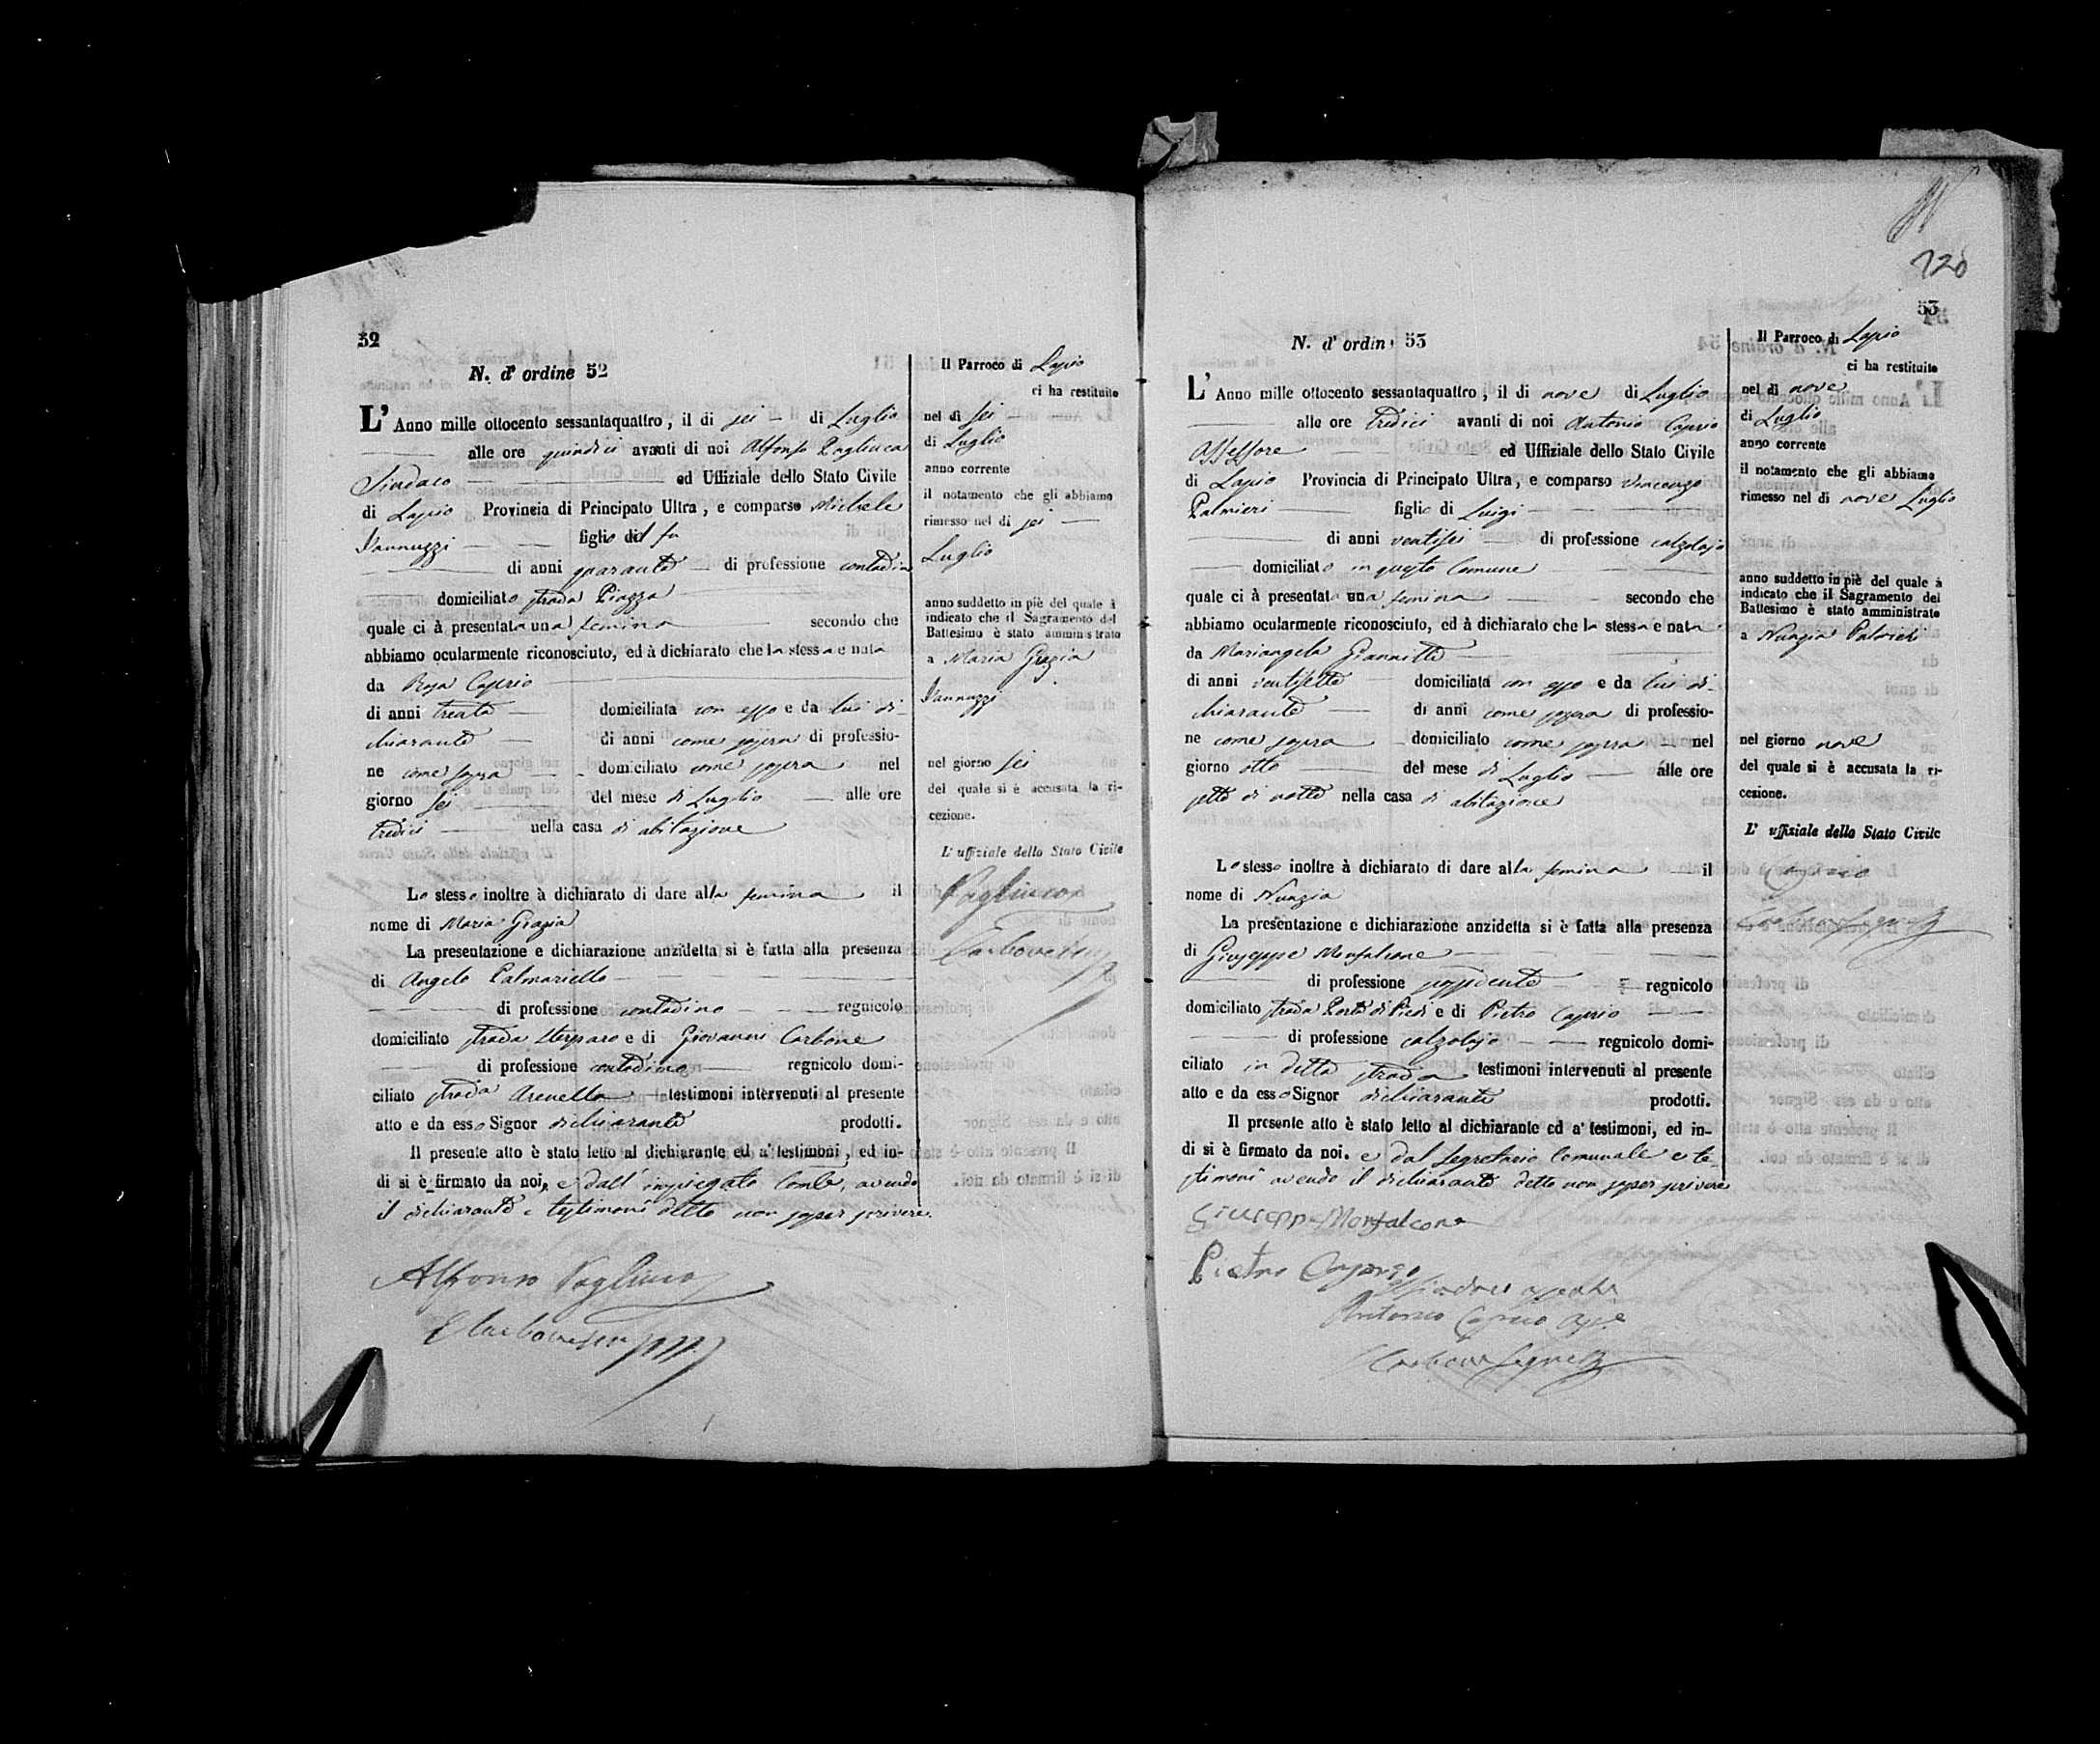 52
N. d' ordine 52
L' Anno mille ottocento sessantaquattro, il di sei di Luglio
alle ore quindici avanti di noi Alfonso Pagliuca
Sindaco ed Uffiziale dello Stato Civile
di Lapio Provincia di Principato Ultra, e comparso Michele
Iannuzzi figlio del fu
di anni quaranta di professione contadino
domiciliato strada Piazza
quale ci à presentata una femina secondo che
abbiamo ocularmente riconosciuto, ed à dichiarato che la stessa e nata
da Rosa Caprio
di anni trenta domiciliata con esso e da lui di-
chiarante di anni come sopra di professio-
ne come sopra domiciliato come sopra nel
giorno sei del mese di Luglio alle ore
tredici nella casa di abitazione
Lo stesso inoltre à dichiarato di dare alla femina il
nome di Maria Grazia
La presentazione e dichiarazione anzidetta si è fatta alla presenza
di Angelo Palmariello
di professione contadino regnicolo
domiciliato strada Sterparo e di Giovanni Carbone
di professione contadino regnicolo domi-
ciliato strada Arenella testimoni intervenuti al presente
atto e da esso Signor dichiarante prodotti.
Il presente atto è stato letto al dichiarante ed a' testimoni, ed in-
di si è firmato da noi, e dall' impiegato Comle, avendo
il dichiarante e testimoni detto non saper scrivere.
Alfonso Pagliuca
Il Parroco di Lapio
ci ha restituito
nel dì sei
di Luglio
anno corrente
il notamento che gli abbiamo
rimesso nel di sei
Luglio
anno suddetto in piè del quale à
indicato che il Sagramento del
Battesimo è stato amministrato
a Maria Grazia
Iannuzzi
nel giorno sei
del quale si è accusata la ri-
cezione.
L' uffiziale dello Stato Civile
Pagliuca
120
53
N. d' ordin 53
L' Anno mille ottocento sessantaquattro, il di nove di Luglio
alle ore tredici avanti di noi Antonio Caprio
Assessore ed Uffiziale dello Stato Civile
di Lapio Provincia di Principato Ultra, e comparso Vincenzo
Palmieri figlio di Luigi
di anni ventisei di professione calzolajo
domiciliato in questo Comune
quale ci à presentata una femina secondo che
abbiamo ocularmente riconosciuto, ed à dichiarato che la stessa e nata
da Mariangela Giannitti
di anni ventisette domiciliata con esso e da lui di-
chiarante di anni come sopra di professio-
ne come sopra domiciliato come sopra nel
giorno otto del mese di Luglio alle ore
sette di notte nella casa di abitazione
Lo stesso inoltre à dichiarato di dare alla femina il
nome di Nunzia
La presentazione e dichiarazione anzidetta si è fatta alla presenza
di Giuseppe Monfalcone
di professione possidente regnicolo
domiciliato strada Porta di Piedi e di Pietro Caprio
di professione calzolajo regnicolo domi-
ciliato in detta strada testimoni intervenuti al presente
atto e da esso Signor dichiarante prodotti.
Il presente atto è stato letto al dichiarante ed a' testimoni, ed in-
di si è firmato da noi. e dal Segretario Comunale e te-
stimoni avendo il dichiarante detto non saper scrivere
Giuseppe Monfalcone
Pietro Caprio
Antonio Caprio
Il Parroco di Lapio
ci ha restituito
nel dì nove
di Luglio
anno corrente
il notamento che gli abbiamo
rimesso nel di nove Luglio
anno suddetto in piè del quale à
indicato che il Sagramento del
Battesimo è stato amministrato
a Nunzia Palmieri
nel giorno nove
del quale si è accusata la ri-
cezione.
L' uffiziale dello Stato Civile
Caprio